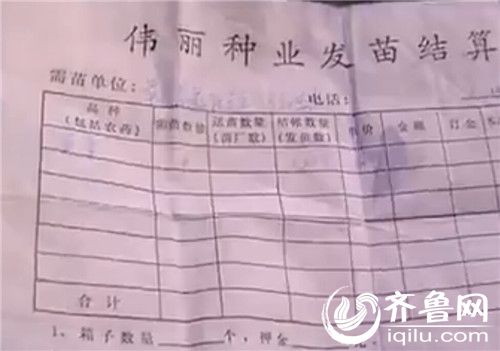 伟丽种业发苗结算
需苗单位： 电话：
品种 需苗数量 送苗数量 结帐数量 单价 金额 订金
（包括农药） （苗厂数） （发苗数）
合计
1、箱子数量 个，押金 元
齐鲁网
iqilu.com